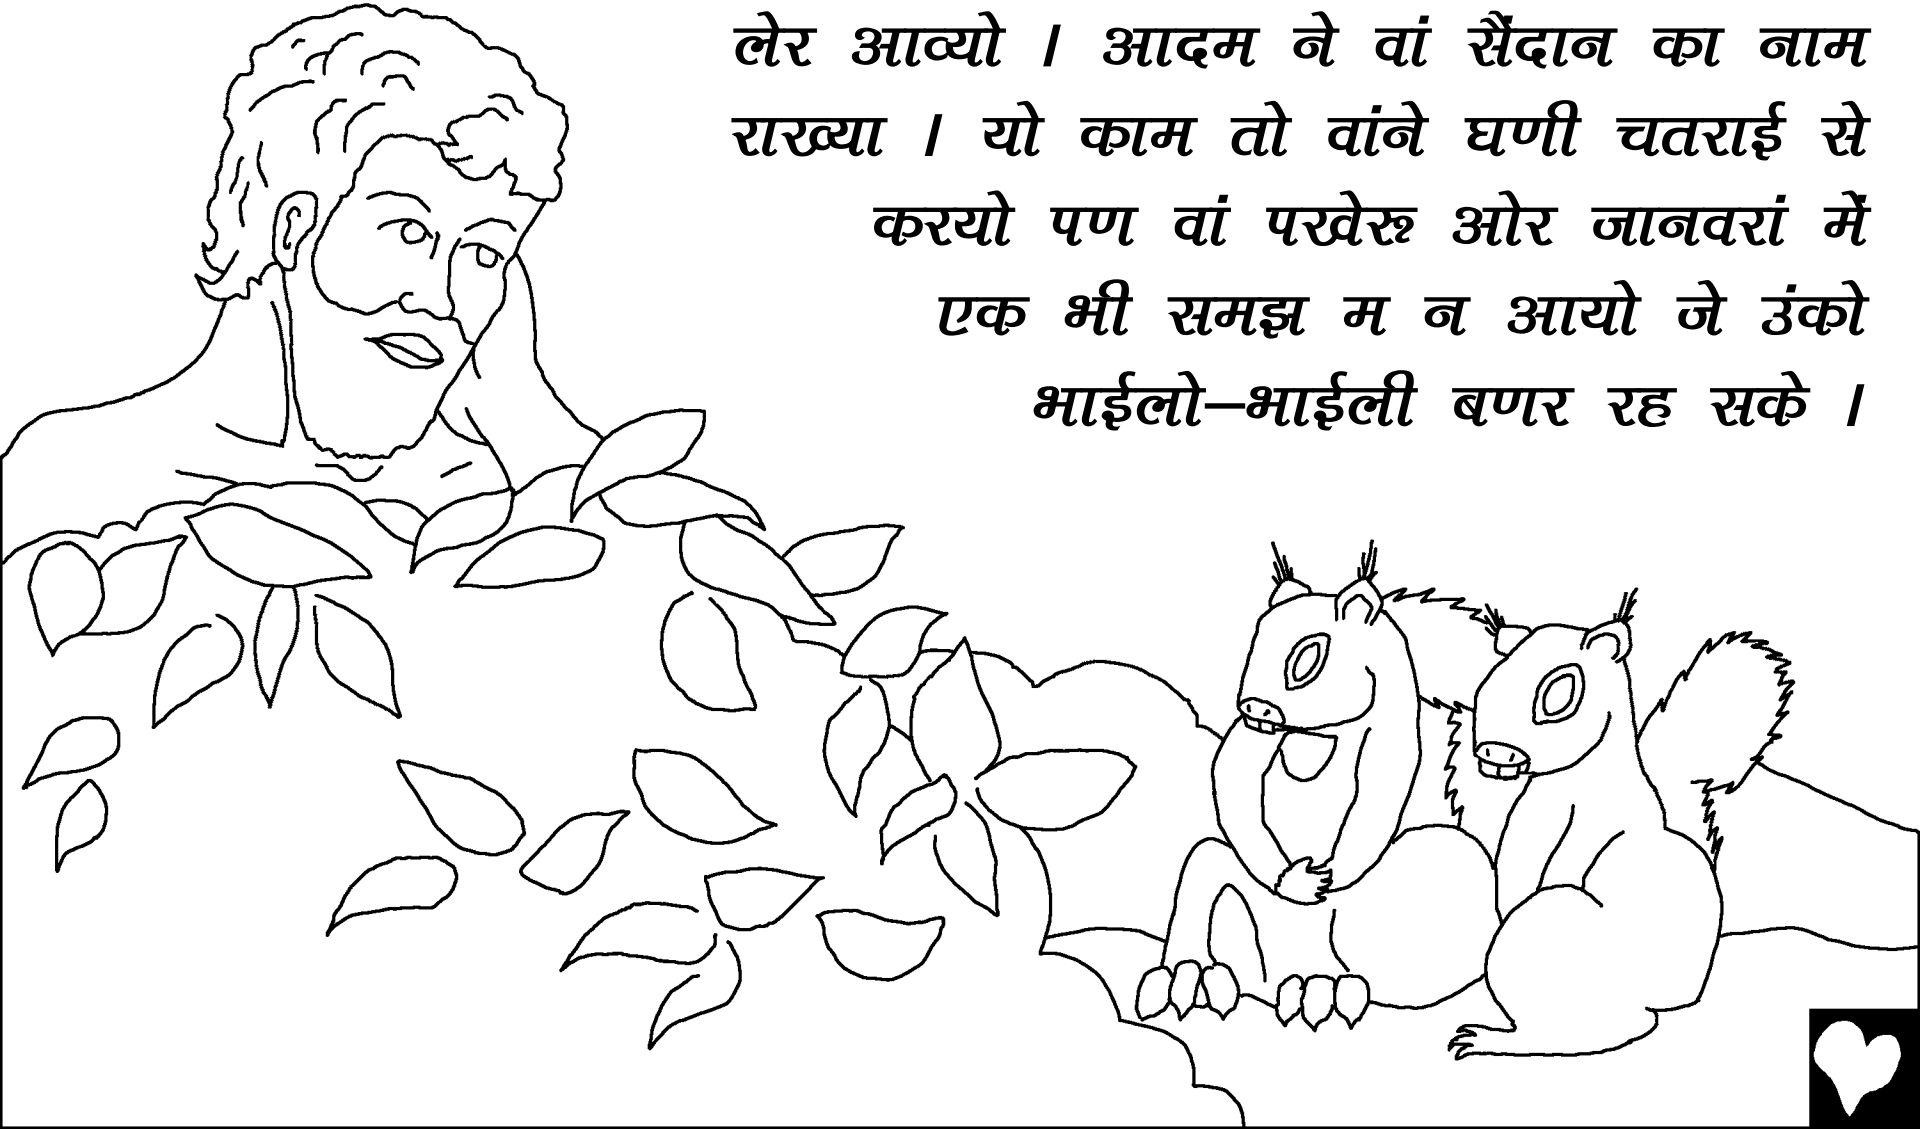 लेर आव्यो । आदम ने वां सैंदान का नाम
राख्या । यो काम तो वांने घणी चतराई से
करयो पण वां पखेरू ओर जानवरां में
एक भी समझ म न आयो जे उंको
भाईलो–भाईली बणर रह सके ।